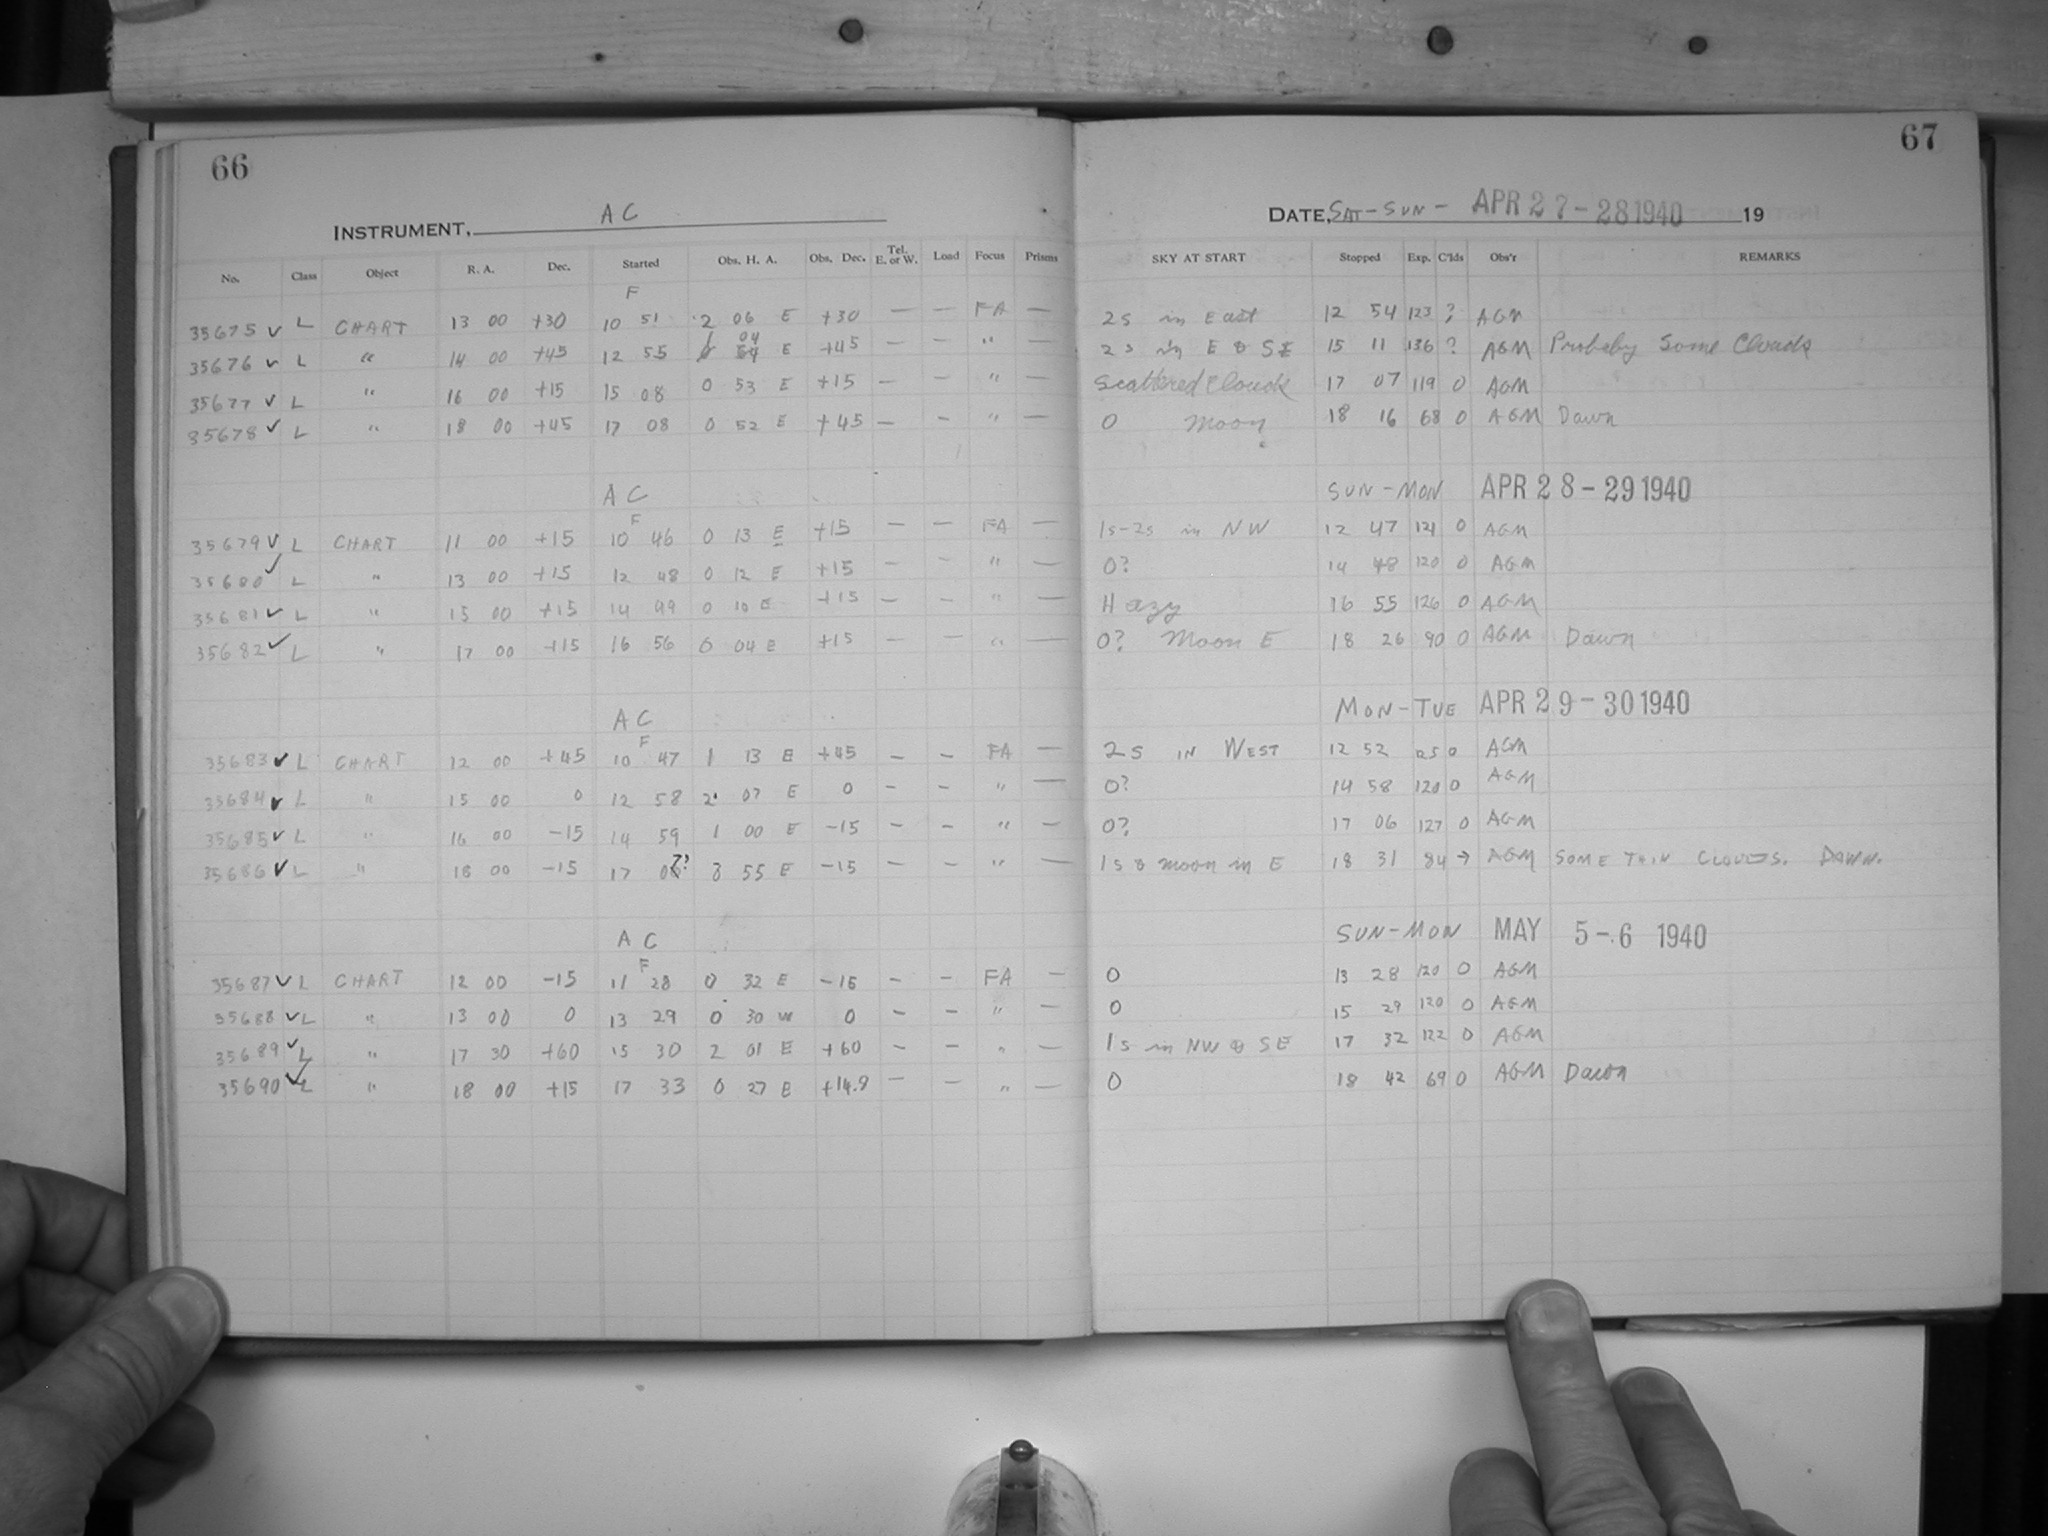 66
INSTRUMENT, A C
No. Class Object R. A. Dec. Started Obs. H. A. Obs. Dec. Tel. E. or W. Load Focus Prisms
F
35675 ✓ L CHART 13 00 +30 10 51 2 06 E +30 — — FA —
35676 ✓ L " 14 00 +45 12 55 1 04 E +45 — — " —
35677 ✓ L " 16 00 +15 15 08 0 53 E +15 — — " —
35678 ✓ L " 18 00 +45 17 08 0 52 E +45 — — " —
A C
F
35679 ✓ L CHART 11 00 +15 10 46 0 13 E +15 — — FA —
35680 ✓ L " 13 00 +15 12 48 0 12 E +15 — — " —
35681 ✓ L " 15 00 +15 14 49 0 10 E +15 — — " —
35682 ✓ L " 17 00 +15 16 56 0 04 E +15 — — " —
A C
F
35683 ✓ L CHART 12 00 +45 10 47 1 13 E +45 — — FA —
35684 ✓ L " 15 00 0 12 58 2 07 E 0 — — " —
35685 ✓ L " 16 00 -15 14 59 1 00 E -15 — — " —
35686 ✓ L " 18 00 -15 17 07? 55 E -15 — — " —
A C
F
35687 ✓ L CHART 12 00 -15 11 28 0 32 E -15 — — FA —
35688 ✓ L " 13 00 0 13 29 0 30 W 0 — — " —
35689 ✓ L " 17 30 +60 15 30 2 01 E +60 — — " —
35690 ✓ L " 18 00 +15 17 33 0 27 E +14.9 — — " —
67
DATE, SAT-SUN- APR 27-28 1940 19
SKY AT START Stopped Exp. C'lds Obs'r REMARKS
2s in East 12 54 123 ? AGM
2s in E & SE 15 11 136 ? AGM Probably Some Clouds
Scattered Clouds 17 07 119 0 AGM
0 Moon 18 16 68 0 AGM Dawn
SUN-MON APR 28-29 1940
1s-2s in NW 12 47 121 0 AGM
0? 14 48 120 0 AGM
Hazy 16 55 126 0 AGM
0? Moon E 18 26 90 0 AGM Dawn
MON-TUE APR 29-30 1940
2s IN WEST 12 52 125 0 AGM
0? 14 58 120 0 AGM
0? 17 06 127 0 AGM
1s & moon in E 18 31 84 → AGM SOME THIN CLOUDS. DAWN.
SUN-MON MAY 5-6 1940
0 13 28 120 0 AGM
0 15 29 120 0 AGM
1s in NW & SE 17 32 122 0 AGM
0 18 42 69 0 AGM Dawn